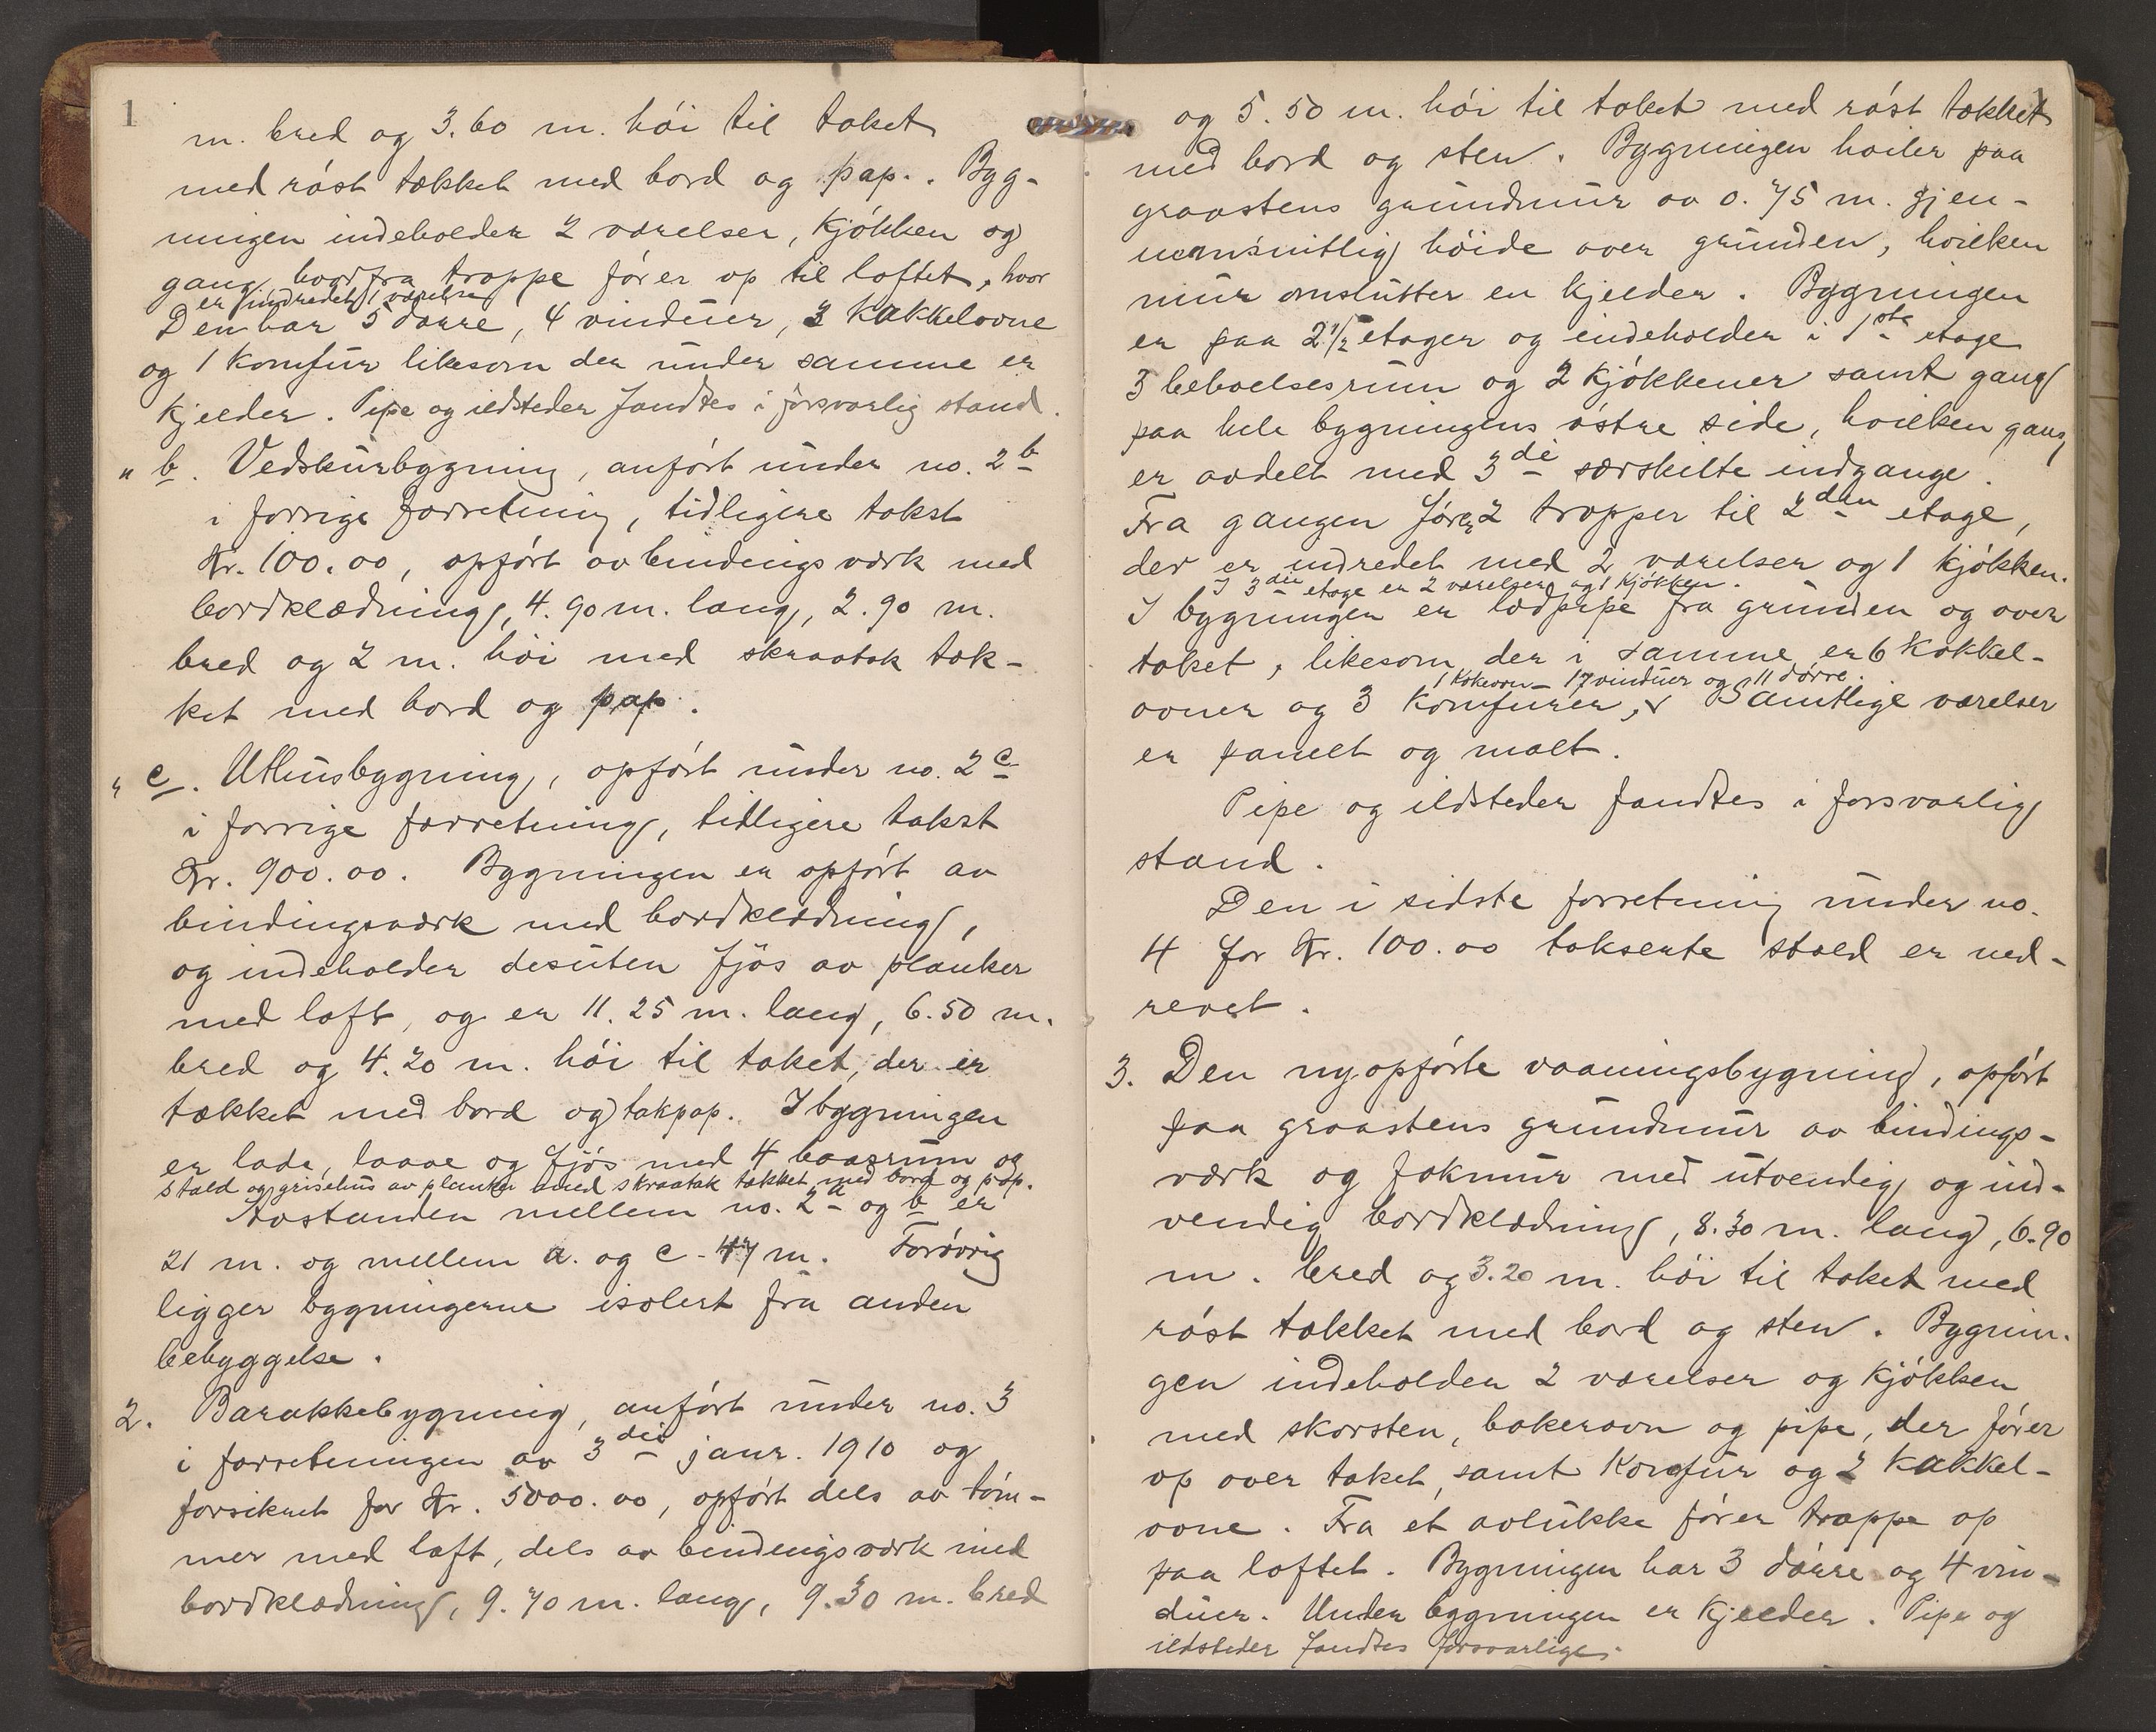 1
m. bred og 3.60 m. hói til taket
med róst tækket med bord og pap. Byg-
ningen indeholder 2 værelser, kjókken og
gang hvorfra trappe fórer op til loftet, hvor
er indredet 1 værelse
Den har 5 dørre, 4 vinduer, 3 kakkelovne
og 1 komfur likesom der under samme er
kjelder. Pipe og ildsteder fandtes i forsvarlig stand.
" b. Vedskurbygning, anført under no. 2 b
i forrige forretning, tidligere takst
Kr. 100.00, opført av bindingsværk med
bordklædning, 4.90 m. lang, 2.90 m.
bred og 2 m. hói med skraatak tæk-
ket med bord og pap.
" c. Uthusbygning, opført under no. 2 c
i forrige forretning, tidligere takst
Kr. 900.00. Bygningen er opført av
bindingsværk med bordklædning,
og indeholder desuten fjøs av planker
med loft, og er 11.25 m. lang, 6.50 m.
bred og 4.20 m. hói til taket, der er
tækket med bord og takpap. I bygningen
er lade, laave og fjós med 4 baasrum og
stald og grisehus av planker med skraatak tækket med bord og pap.
Avstanden mellem no. 2 a og b er
21 m. og mellem a. og c - 47 m. Forøvrig
ligger bygningerne isolert fra anden
bebyggelse.
2. Barakkebygning, anført under no. 3
i forretningen av 3 die janr. 1910 og
forsikret for Kr. 5000.00, opført dels av tóm-
mer med laft, dels av bindingsværk med
bordklædning, 9.70 m. lang, 9.30 m. bred
og 5.50 m. hói til taket med róst tækket
med bord og sten. Bygningen hviler paa
graastens grundmur av 0.75 m. gjen-
nemsnitlig hóide over grunden, hvilken
mur omslutter en kjelder. Bygningen
er paa 2 1/2 etager og indeholder i 1 ste etage
3 beboelsesrum og 2 kjókkener samt gang
paa hele bygningens østre side, hvilken gang
er avdelt med 3 di særskilte indgange.
Fra gangen fórer 2 trapper til 2 den etage,
der er indredet med 2 værelser og 1 kjókken.
I 3 die etage er 2 værelser og 1 kjókken.
I bygningen er lodpipe fra grunden og over
taket, likesom der i samme er 6 kakkel-
1 kokeovn - 17 vinduer og 11 dørre.
ovner og 3 komfurer, Samtlige værelser
er panelt og malt.
Pipe og ildsteder fandtes i forsvarlig
stand.
Den i sidste forretning under no.
4 for Kr. 100.00 takserte stald er ned-
revet.
3. Den nyopførte vaaningsbygning, opført
paa graastens grundmur av bindings-
værk og fakmur med utvendig og ind-
vendig bordklædning, 8.30 m. lang, 6.90
m. bred og 3.20 m. hói til taket med
róst tækket med bord og sten. Bygnin-
gen indeholder 2 værelser og kjókken
med skorsten, bakerovn og pipe, der fórer
op over taket, samt komfur og 2 kakkel-
ovne. Fra et avlukke fórer trappe op
paa loftet. Bygningen har 3 dørre og 4 vin-
duer. Under bygningen er kjelder. Pipe og
ildsteder fandtes forsvarlige.